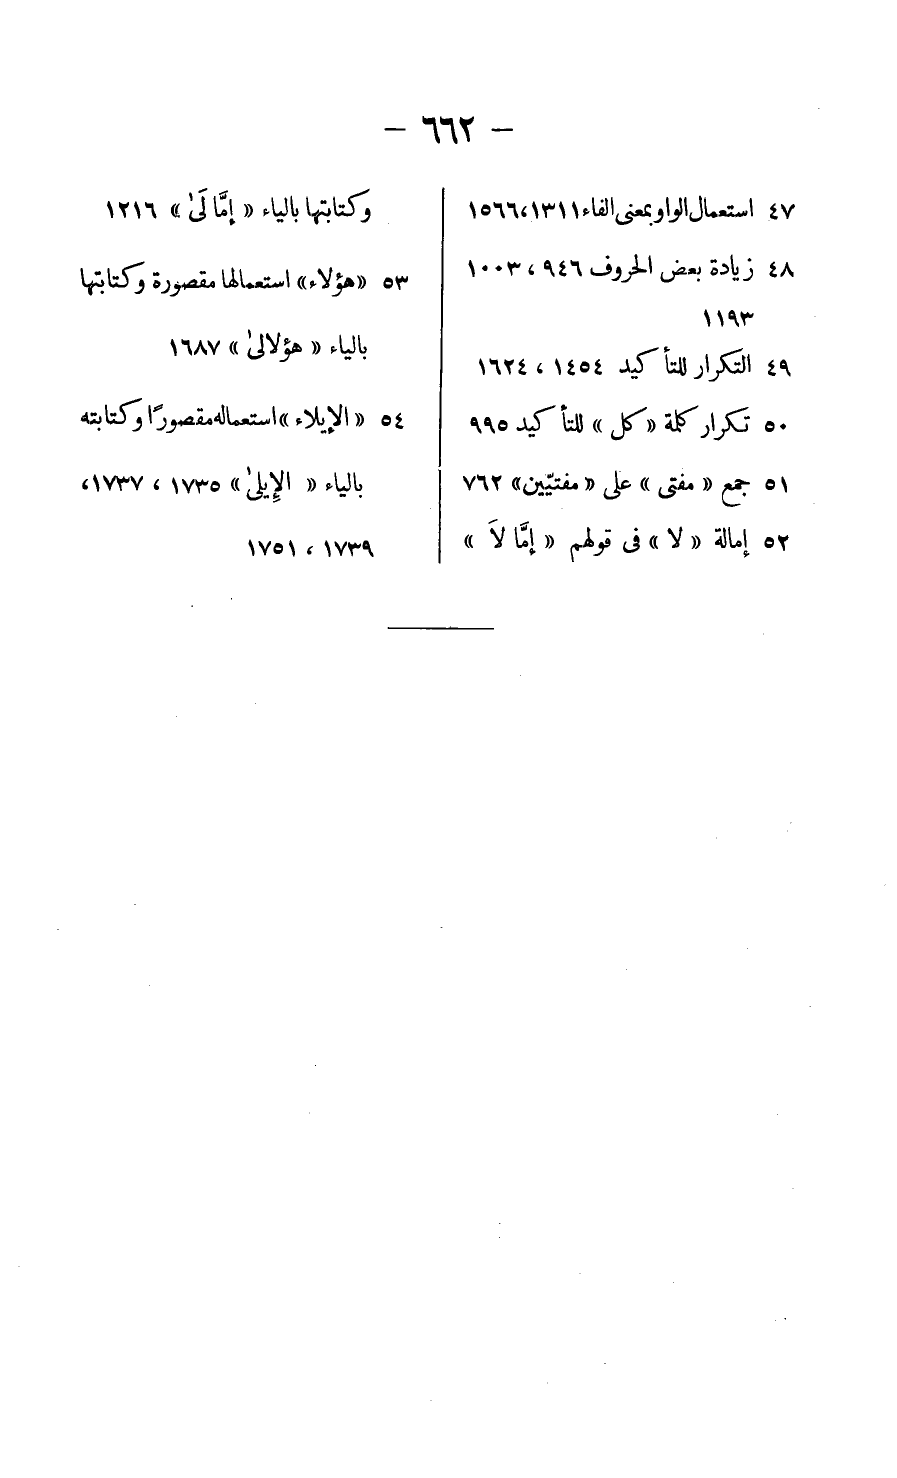 — ٦٦٢ —
٤٧ استعمال الواو بمعنى الفاء ١٣١١، ١٥٦٦
٤٨ زيادة بعض الحروف ٩٤٦ ، ١٠٠٣
١١٩٣
٤٩ التكرار للتأكيد ١٤٥٤ ، ١٦٢٤
٥٠ تكرار كلمة «كل» للتأكيد ٩٩٥
٥١ جمع « مفتى » على « مفتيّين» ٧٦٢
٥٢ إمالة « لا » فى قولهم « إمَّا لاَ »
وكتابتها بالياء « إمَّا لَىٰ » ١٢١٦
٥٣ «هؤلاء» استعمالها مقصورة وكتابتها
بالياء « هؤلالىٰ » ١٦٨٧
٥٤ « الإيلاء » استعماله مقصورًا وكتابته
بالياء « الإِيلىٰ » ١٧٣٥ ، ١٧٣٧،
١٧٣٩ ، ١٧٥١